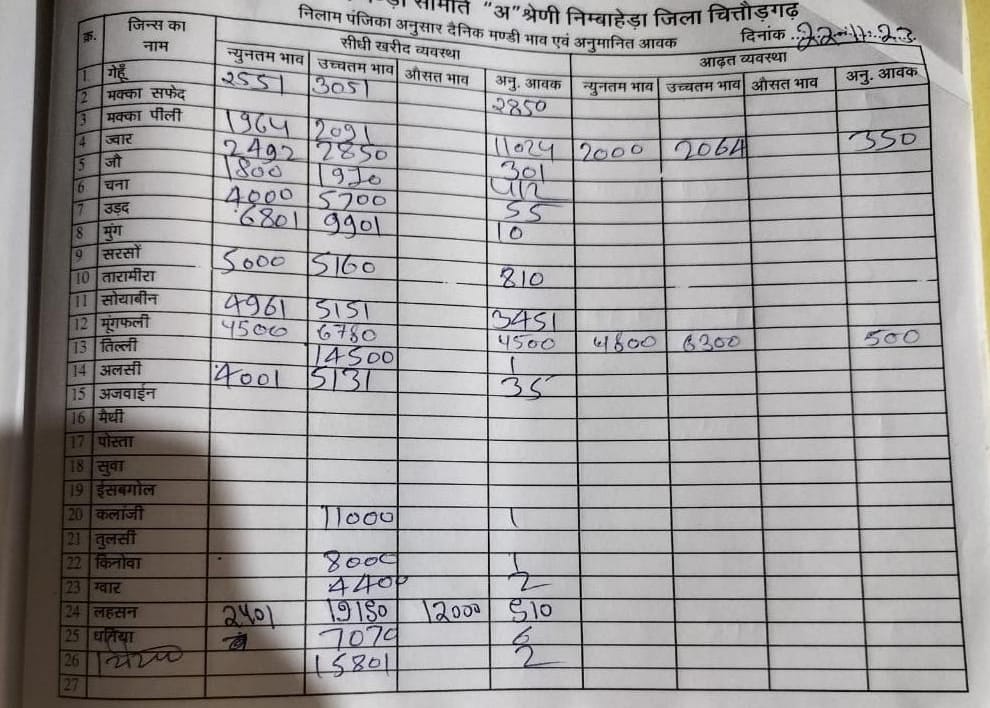 समिति "अ"श्रेणी निम्बाहेड़ा जिला चित्तौड़गढ़
निलाम पंजिका अनुसार दैनिक मण्डी भाव एवं अनुमानित आवक दिनांक 22-11-23
क्र. जिन्स का नाम सीधी खरीद व्यवस्था आढ़त व्यवस्था
न्युनतम भाव उच्चतम भाव औसत भाव अनु. आवक न्युनतम भाव उच्चतम भाव औसत भाव अनु. आवक
1 गेहूँ 2551 3051 2850
2 मक्का सफेद
3 मक्का पीली 1964 2091 11024 2000 2064 350
4 ज्वार 2492 2850 301
5 जौ 1800 1970 412
6 चना 4000 5700 55
7 उड़द 6801 9901 10
8 मुंग
9 सरसों 5000 5160 810
10 तारामीरा
11 सोयाबीन 4961 5151 3451
12 मूंगफली 4500 6780 4500 4800 6300 500
13 तिल्ली 14500 1
14 अलसी 4001 5131 35
15 अजवाईन
16 मैथी
17 पोस्ता
18 सुवा
19 ईसबगोल
20 कलौंजी 11000 1
21 तुलसी
22 किनोवा 8000 1
23 ग्वार 4400 2
24 लहसन 2401 19150 12000 510
25 धनिया 7070 6
26 15801 2
27